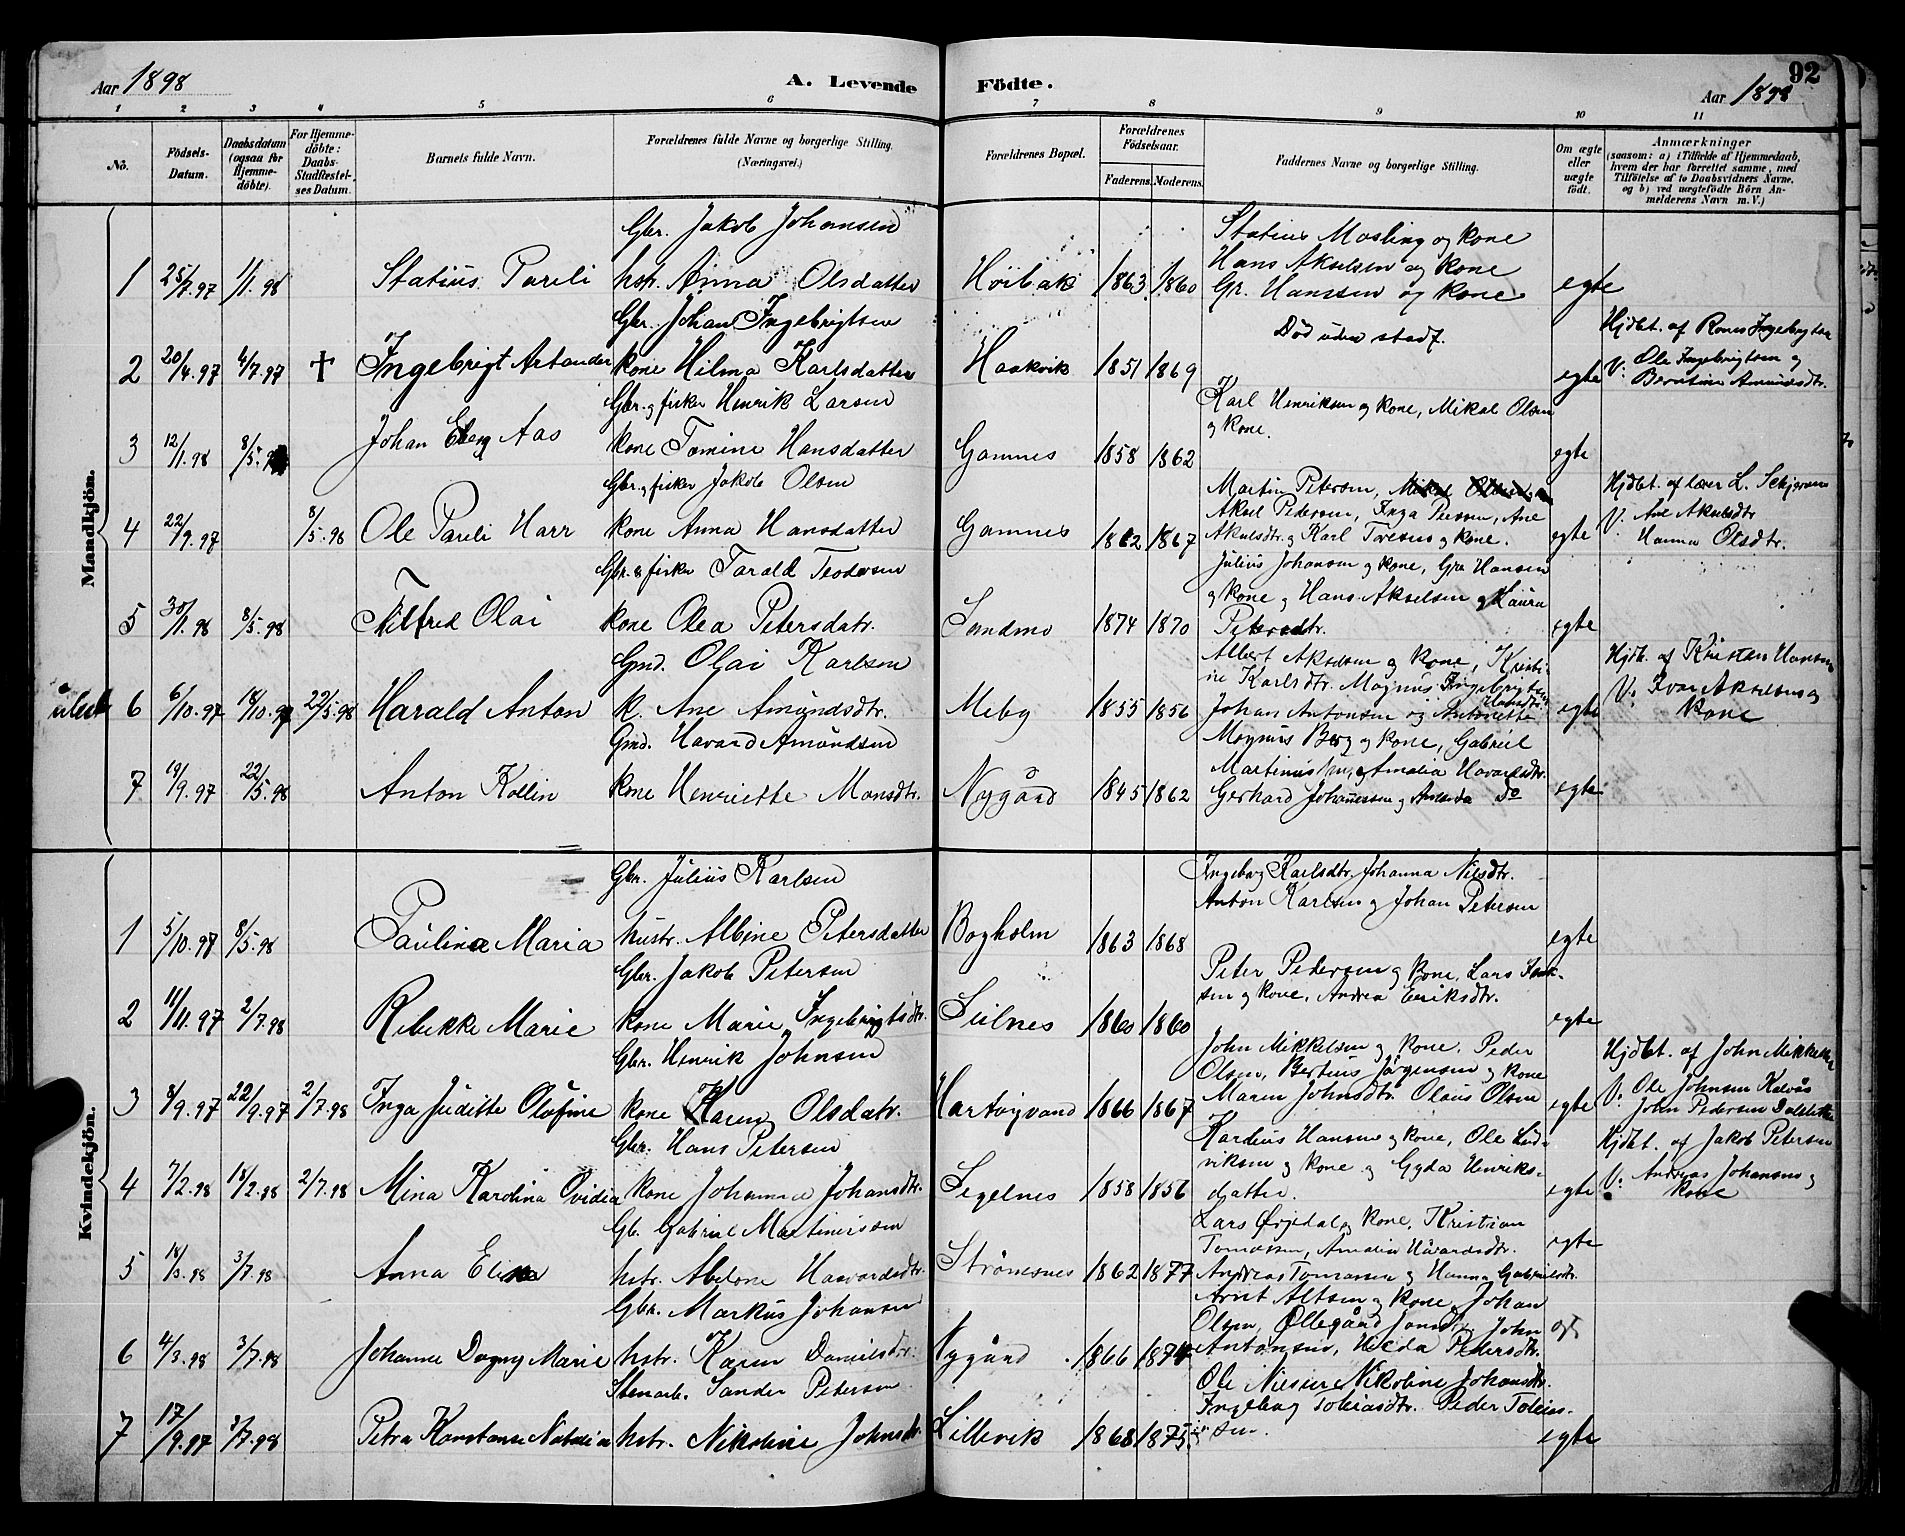 92
Aar 1898
A. Levende Födte.
Aar 1898
1 2 3 4 5 6 7 8 9 10 11
No.
Födsels-Datum.
Daabsdatum (ogsaa for Hjemme-döbte).
For Hjemme-döbte: Daabs-Stadfæstel-ses Datum.
Barnets fulde Navn.
Forældrenes fulde Navne og borgerlige Stilling. (Næringsvei.)
Forældrenes Bopæl.
Forældrenes Födselsaar.
Faderens. Moderens.
Faddernes Navne og borgerlige Stilling.
Om ægte eller uægte födt.
Anmærkninger
(saasom: a) i Tilfælde af Hjemmedaab,
hvem der har forrettet samme, med
Tilföielse af to Daabsvidners Navne,
og b) ved uægtefödte Börn An-
melderens Navn m. V.)
Mandkjön.
Gbr. Jakob Johansen
Statius Mosling og kone
Hans Akselsen og kone
1 25/7.97 1/1.98 Statius Pareli hstr. Anna Olsdatter Høibak 1863 1860 Gr. Hanssen og kone egte
Gbr. Johan Ingebrigtsen
Død uden stadf.
Hjdbt. af Ingebrigtsen
2 20/4.97 4/7.97 † Ingebrigt Artander kone Hilma Karlsdatter Haakvik 1851 1869 egte V: Ole Ingebrigtsen og
Berntine Amundsdtr.
Gbr. og fisker Henrik Larsen
Karl Henriksen og kone, Mikal Olsen
og kone.
3 12/1.98 8/5. Johan Aas kone Tomine Hansdatter Gamnes 1858 1862 egte
Gbr. og fisker Jakob Olsen
Martin Petersen,
Hjdbt. af lærer L.
Aksel Pedersen, Inga Peersen, Ane
4 22/9.97 8/5.98 Ole Pareli Harr kone Anna Hansdatter Gamnes 1862 1867 Akselsdtr. og Karl Toresen og kone. egte V: Ane Akselsdtr.
Hanna Olsdtr.
Gbr. & fisker Tarald Teodorsen
Julius Johansen og kone, Hansen
og kone og Hans Akselsen og Laura
5 30/1.98 8/5.98 Olai kone Olea Petersdatr. Sandmo 1874 1870 Petersdtr. egte
Gmd. Olai Karlsen
Albert Akselsen og kone, Kristi-
ne Karlsdtr. Magnus Ingebrigtsen
Hjdb. af Kristen Hansen
6 6/10.97 18/10.97 22/5.98 Harald Anton k. Ane Amundsdtr. Meby 1855 1856 Johan Antonsen og Antonette egte V: Ivar Akselsen og
kone
Gmd. Havard Amundsen
Magnus Berg og kone, Gabriel
Martinussen og Amalia Havardsdtr.
7 19/9.97 22/5.98 Anton Kollin kone Henriette Monsdtr. Nygård 1845 1862 Gerhard Johannessen og Do egte
Kvindekjön.
Gbr. Julius Karlsen
Ingeborg Karlsdtr. Johanna Nilsdtr.
Anton Karlsen og Johan Petersen
1 5/10.97 8/5.98 Paulina Maria hustr. Albine Petersdatter Bogholm 1863 1868 egte
Gbr. Jakob Petersen
Peter Pedersen og kone, Lars
sen og kone, Andrea Eriksdtr.
2 11/11.97 2/7.98 Rebekke Marie kone Marie Ingebrigtsdtr. 1860 1860 egte
Gbr. Henrik Johnsen
John Mikkelsen og kone. Peder
Olsen, Bertius Jørgensen og kone
Hjdbt. af John Mikkelsen
3 8/9.97 22/9.97 2/7.98 Inga Juditte Olufine kone Karen Olsdatr. Hartvigvand 1866 1867 Maren Johnsdtr. Olaus Olsen egte V: Ole Johnsen
John Pedersen
Gbr. Hans Petersen
Kardius Hansen og kone, Ole Lud-
viksen og kone og Gyda Henriks-
Hjdbt. af Jakob Petersen
4 7/2.98 18/2.98 2/7.98 Mina Karolina Ovidia kone Johanna Johansdtr. Segelnes 1858 1856 datter. egte V: Andreas Johansen og
kone
Gb. Gabriel Martinussen
Lars og kone, Kristian
Tomassen, Amalia Håvardsdtr.
5 18/3.98 3/7.98 Anna hstr. Abelone Haavardsdtr. Strømsnes 1862 1877 Andreas Tomassen og Hanna Gabrielsdtr. egte
Gbr. Markus Johansen
Arnt Altsen og kone Johan
Olsen, Øllegård Jonsdtr. John
6 4/3.98 3/7.98 Johanne Dagny Marie hstr. Karen Danielsdtr. Nygård 1866 1874 Antonsen, Pedersdtr.
Stenarb. Sander Petersen
Ole Nikoline Johansdtr.
Ingeborg Tobiasdtr. Peder Tobias-
7 17/9.97 3/7.98 Petra Konstanse Natalia hstr. Nikoline Johnsdtr. Lillevik 1868 1875 sen. egte